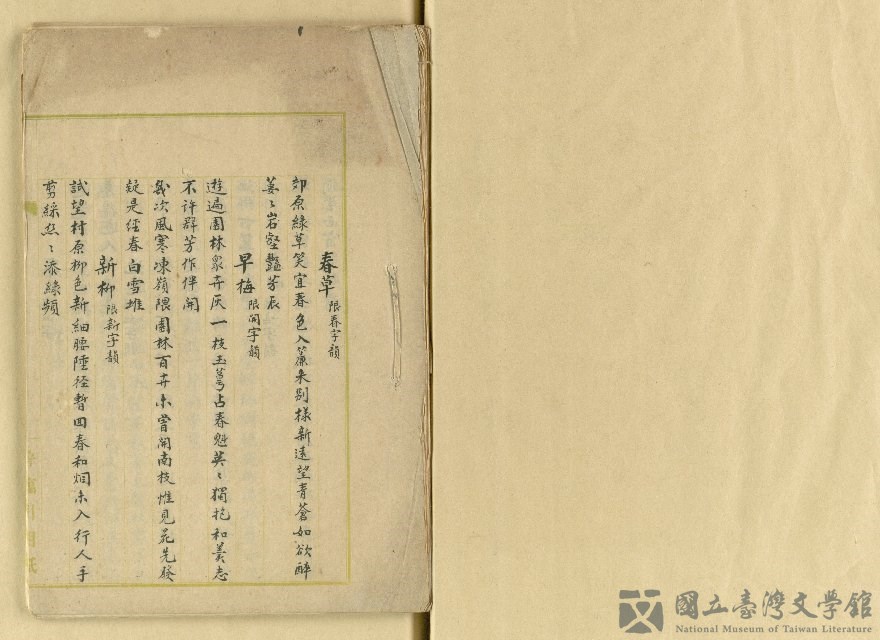 春草 限春字韻
郊原綠草笑宜春色入簾來別樣新遠望青蒼如欲醉
萋〻岩壑豔芳辰
早梅 限開字韻
遊過園林衆卉灰一枝玉萼占春魁英〻獨抱和羹志
不許群芳作伴開
幾次風寒凍嶺隈園林百卉未曾開南枝惟見花先發
疑是經春白雪堆
新柳 限新字韻
試望村原柳色新細腰陸徑暫回春和烟未入行人手
剪綵丝〻添綠頻
國立臺灣文學館
National Museum of Taiwan Literature